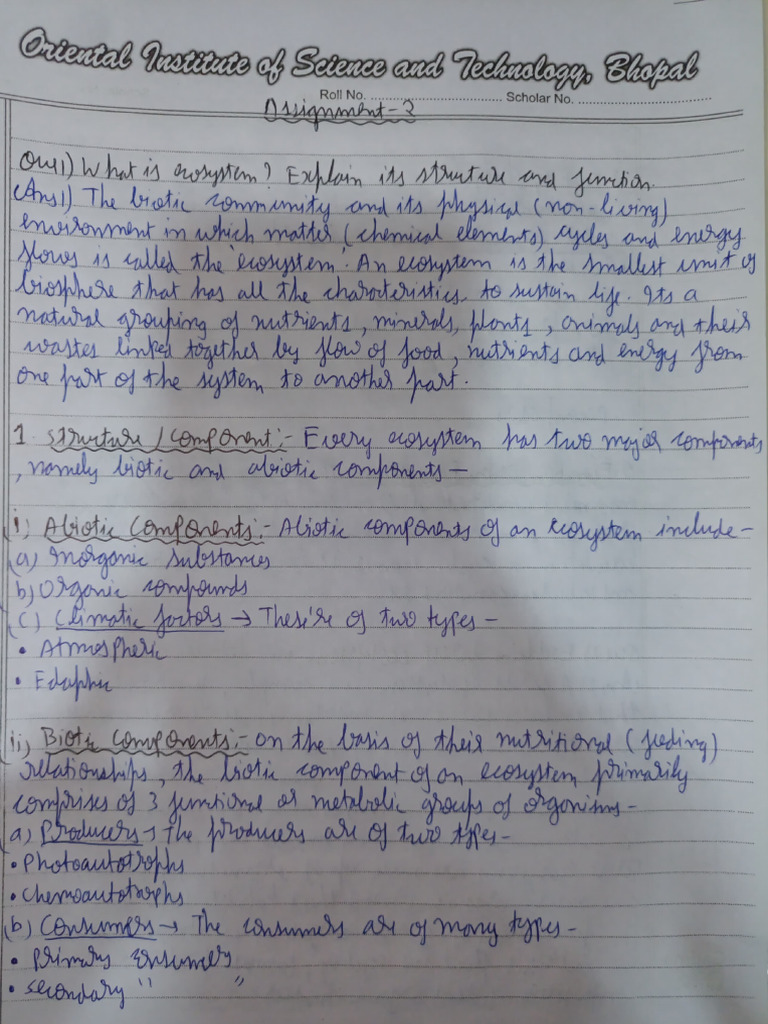 Oriental Institute of Science and Technology, Bhopal
Roll No. .................................. Scholar No. ..................................
Assignment-3
Que1) What is ecosystem? Explain its structure and function.
(Ans1) The biotic community and its physical (non-living)
environment in which matter (chemical elements) cycles and energy
flows is called the 'ecosystem'. An ecosystem is the smallest unit of
biosphere that has all the characteristics to sustain life. Its a
natural grouping of nutrients, minerals, plants, animals and their
wastes linked together by flow of food, nutrients and energy from
one part of the system to another part.
1. Structure/component:- Every ecosystem has two major components
, namely biotic and abiotic components —
i) Abiotic Components:- Abiotic components of an ecosystem include —
(a) Inorganic substances
b) Organic compounds
(c) Climatic factors → These're of two types —
• Atmospheric
• Edaphic
ii) Biotic Components:- on the basis of their nutritional (feeding)
relationships, the biotic component of an ecosystem primarily
comprises of 3 functional or metabolic groups of organisms —
a) Producers → The producers are of two types —
• Photoautotrophs
• Chemoautotrophs
(b) Consumers → The consumers are of many types —
• primary consumers
• secondary " "